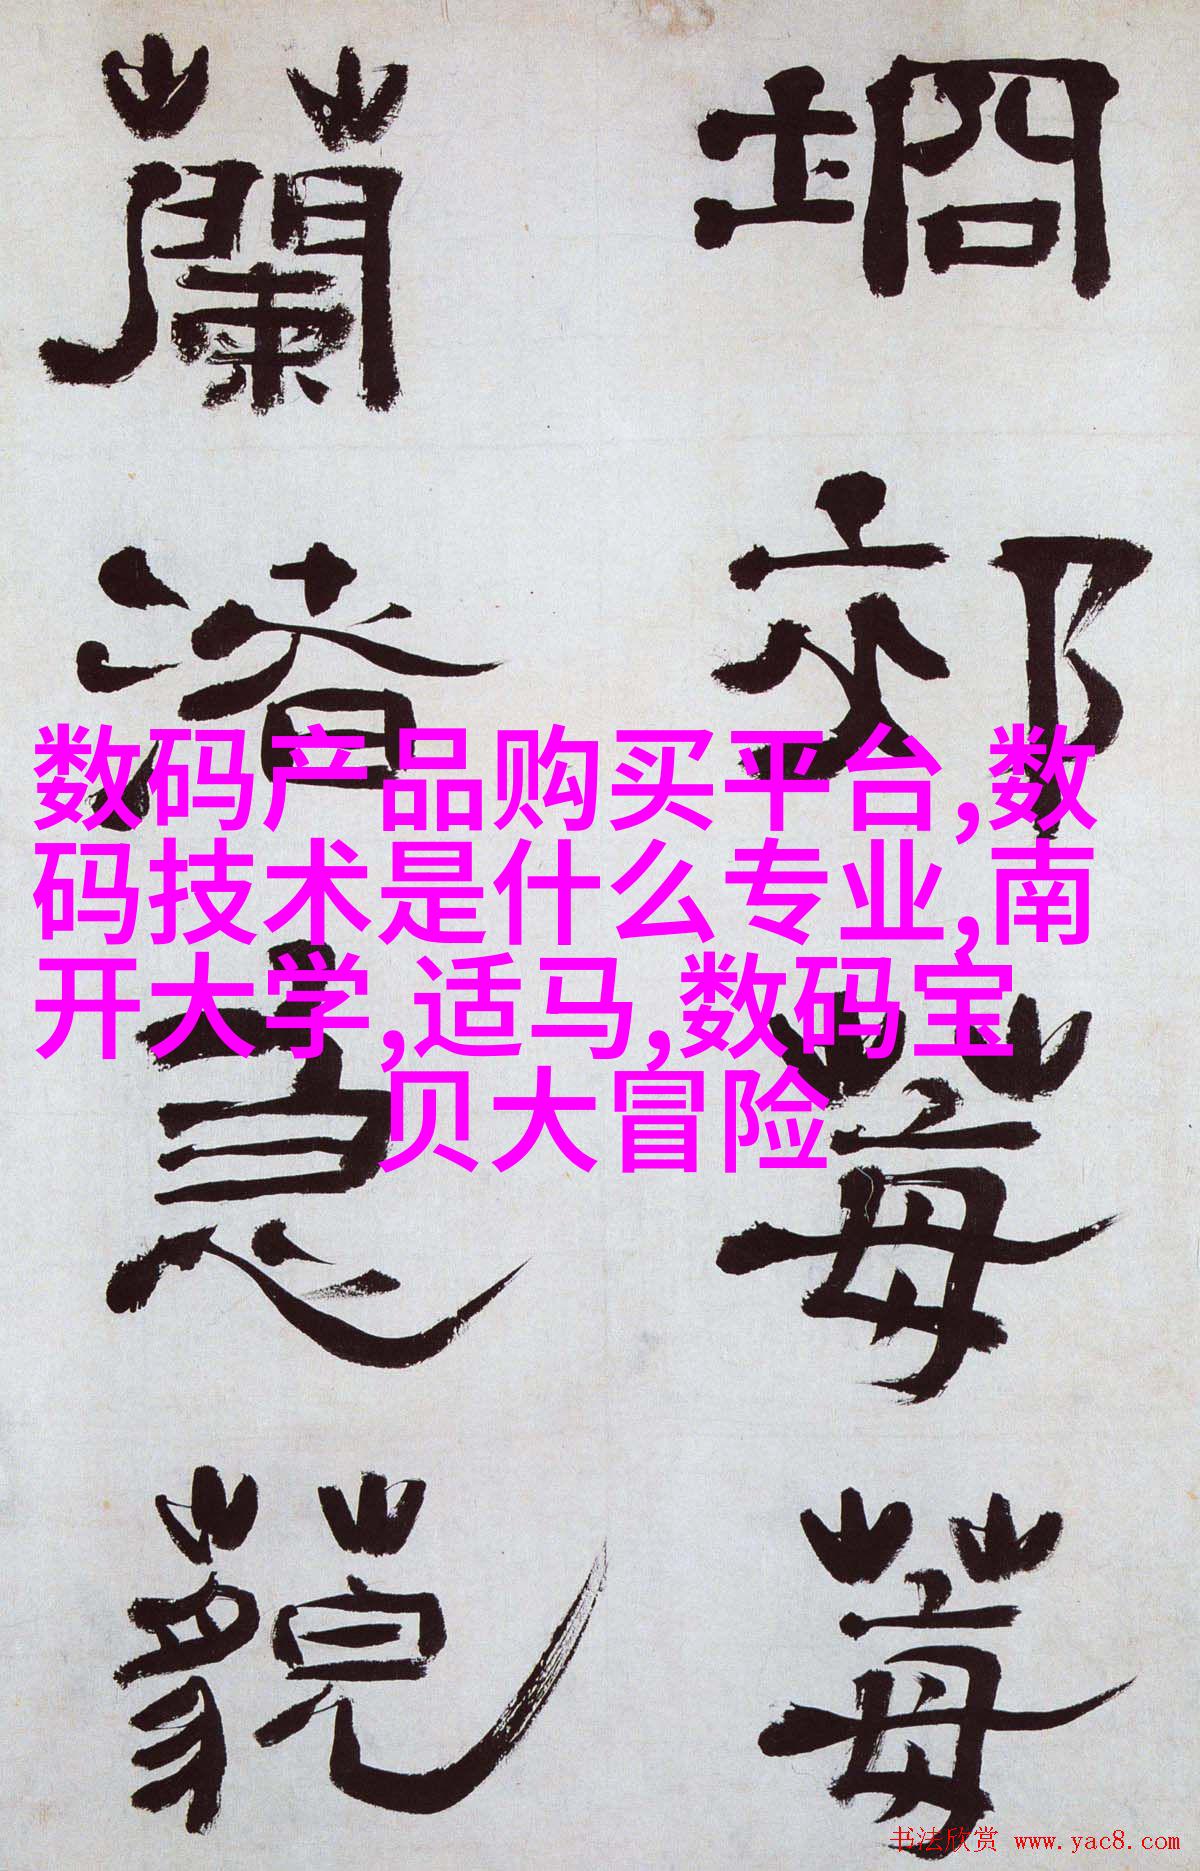 坰郊莓莓
蘭渚急藐
数码产品购买平台,数
码技术是什么专业,南
开大学,适马,数码宝
贝大冒险
书法欣赏 www.yac8.com